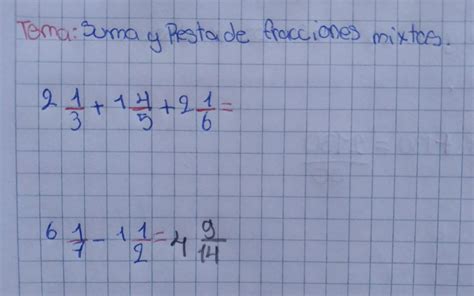 Tema: Suma y Resta de fracciones mixtas.
2 1/3 + 1 4/5 + 2 1/6 =
6 1/7 - 1 1/2 = 4 9/14